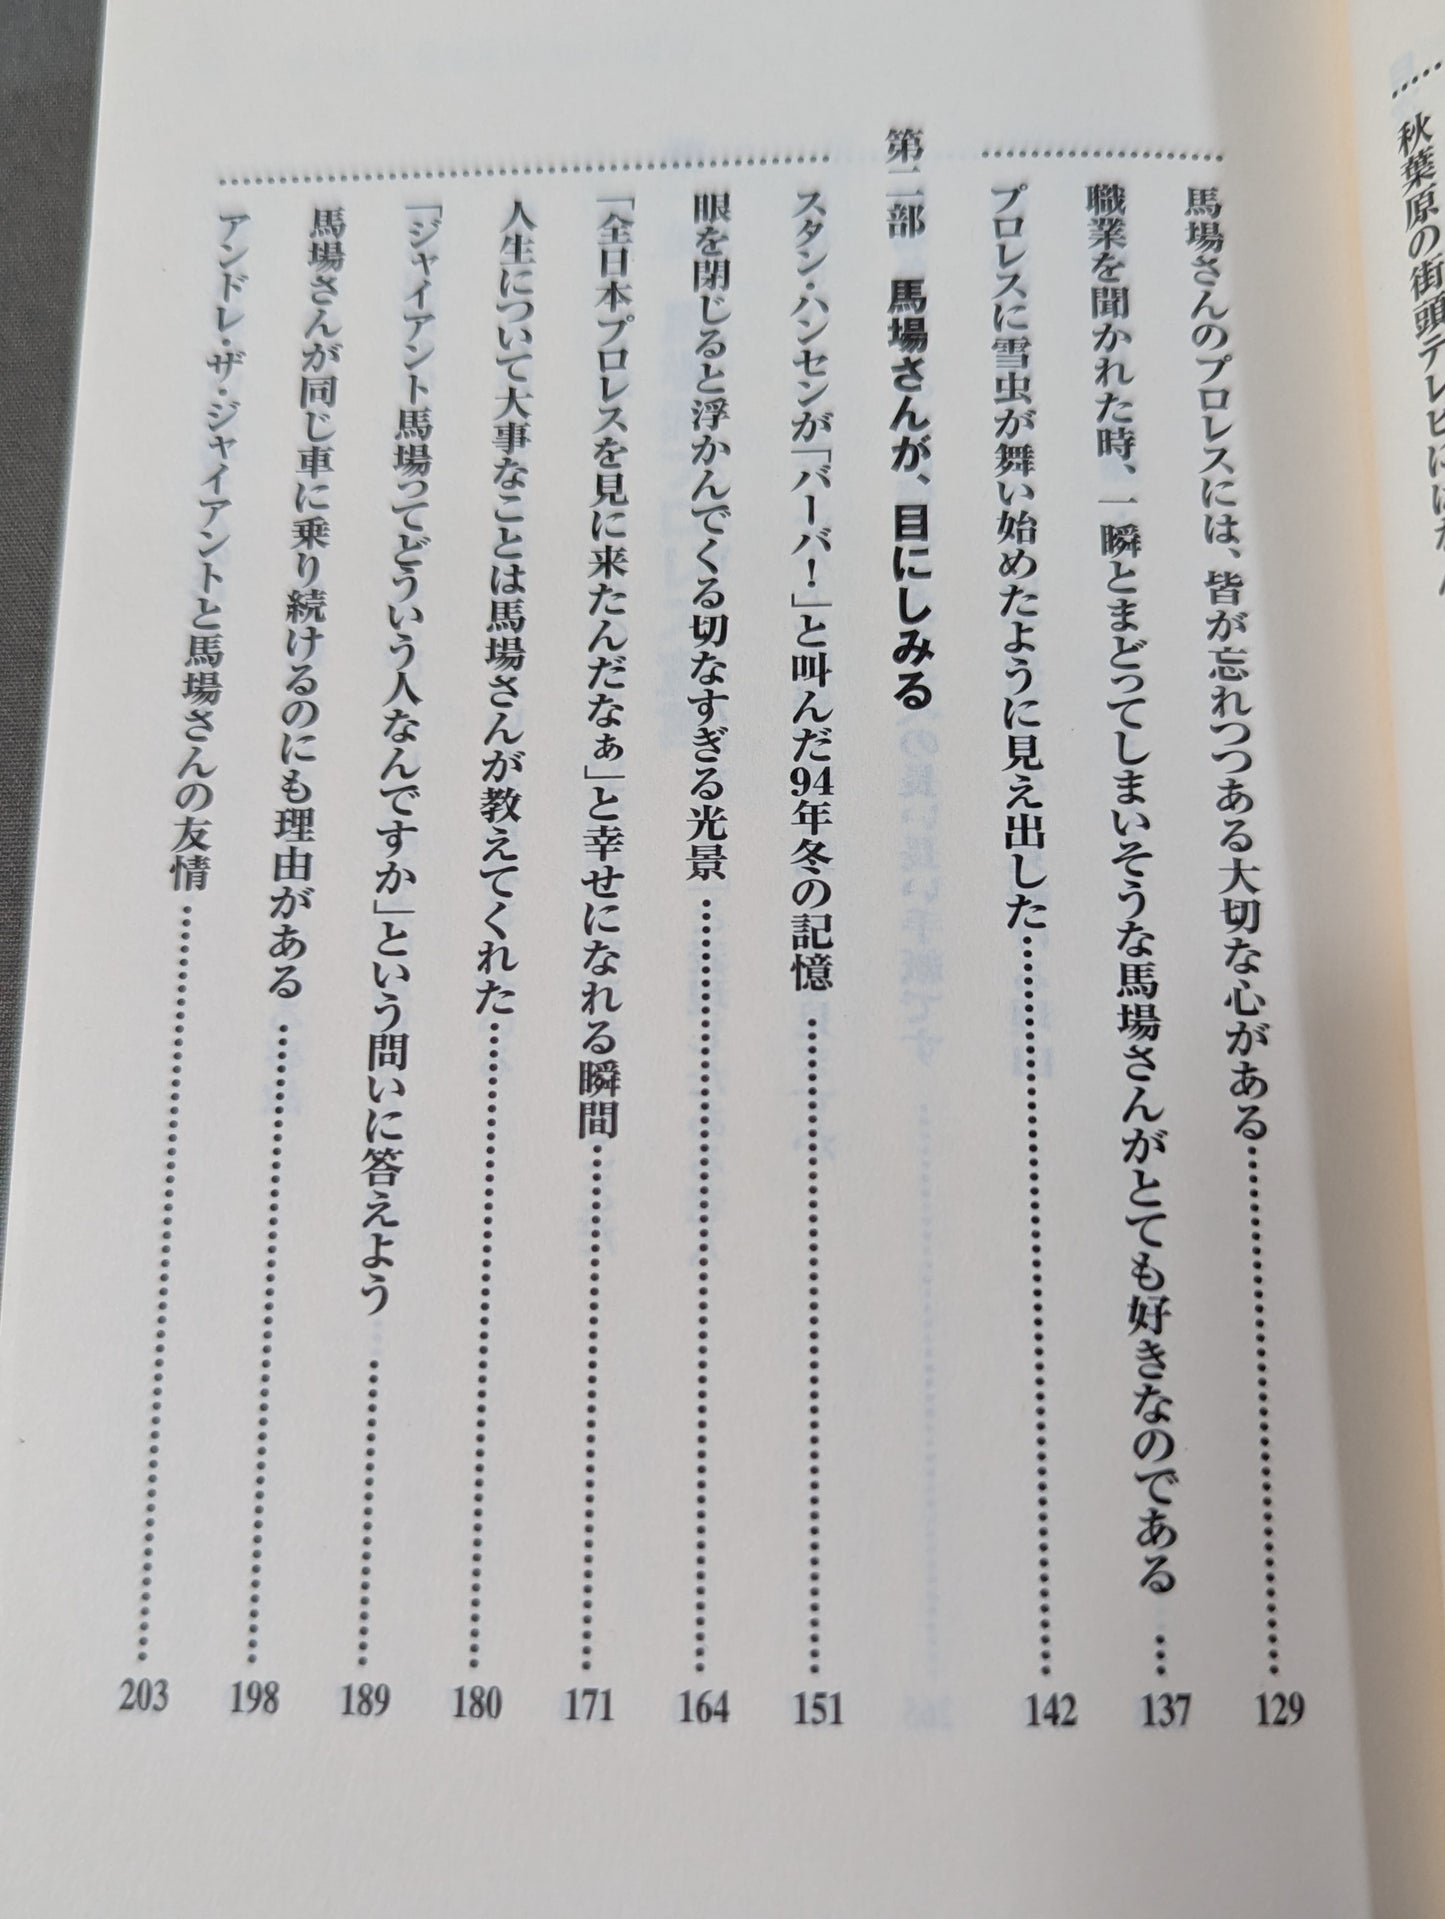 秋葉原の街頭テレビに
馬場さんのプロレスには、皆が忘れつつある大切な心がある……129
職業を聞かれた時、一瞬とまどってしまいそうな馬場さんがとても好きなのである……137
プロレスに雪虫が舞い始めたように見え出した……142
第二部 馬場さんが、目にしみる
スタン・ハンセンが「バーバ！」と叫んだ94年冬の記憶……151
眼を閉じると浮かんでくる切なすぎる光景……164
「全日本プロレスを見に来たんだなぁ」と幸せになれる瞬間……171
人生について大事なことは馬場さんが教えてくれた……180
「ジャイアント馬場ってどういう人なんですか」という問いに答えよう……189
馬場さんが同じ車に乗り続けるのにも理由がある……198
アンドレ・ザ・ジャイアントと馬場さんの友情……203